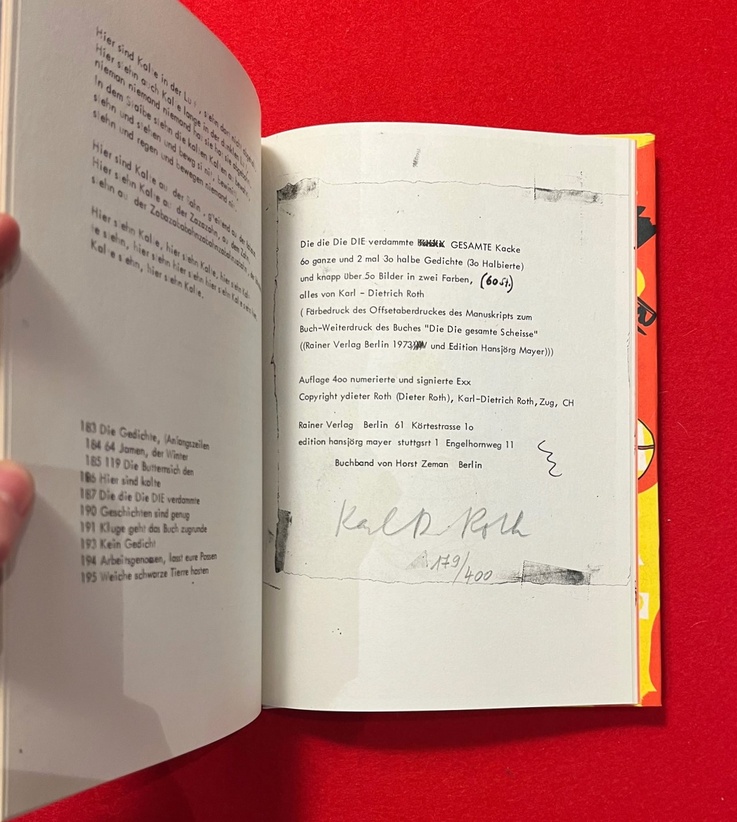 Hier sind Kal e in der Lu
Hier siehn auch Kal e lange in der dunklen
nieman niemand niemand hat sie
In dem S aibe siehn die kalten Kal en
siehn und s ehen und beweg
siehn und regen und bewegen niemand
Hier sind Kal e au der Bahn
Hier s ehn Kal e au der Zazazahn, au den
siehn au der
Hier s ehn Kal e, hier s ehn Kal e, hier s ehn Kal
e s ehn, hier s ehn hier s ehn hier s ehn
Kal e s ehn, hier s ehn Kal e.
183 Die Gedichte, (Anfangszeilen
184 64 Jamen, der Winter
185 119 Die Butterreich den
186 Hier sind kalte
187 Die die Die DIE verdammte
190 Geschichten sind genug
191 Kluge geht das Buch zugrunde
193 Kein Gedicht
194 Arbeitsgenossen, lasst eure Possen
195 Weiche schwarze Tierre hasten
Die die Die DIE verdammte GESAMTE Kacke
6o ganze und 2 mal 3o halbe Gedichte (3o Halbierte)
und knapp über 5o Bilder in zwei Farben, (60 St.)
alles von Karl - Dietrich Roth
( Färbedruck des Offsetaberdruckes des Manuskripts zum
Buch-Weiterdruck des Buches "Die Die gesamte Scheisse"
((Rainer Verlag Berlin 1973 und Edition Hansjörg Mayer)))
Auflage 4oo numerierte und signierte Exx
Copyright ydieter Roth (Dieter Roth), Karl-Dietrich Roth, Zug, CH
Rainer Verlag Berlin 61 Körtestrasse 1o
edition hansjörg mayer stuttgsrt 1 Engelhornweg 11
Buchband von Horst Zeman Berlin
Karl D Roth
179/400